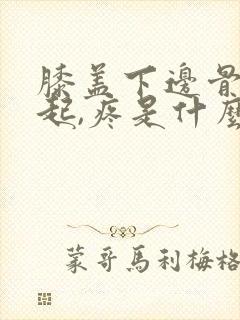 膝盖下邊骨
起,疼是什麼
蒙哥馬利梅格